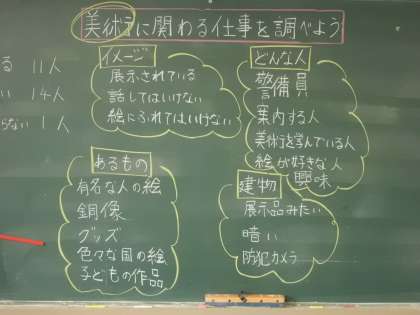 美術に関わる仕事を調べよう
る 11人
い 14人
らない 1人
イメージ
展示されている
話してはいけない
絵にふれてはいけない
どんな人
警備員
案内する人
美術を学んでいる人
絵が好きな人
興味
あるもの
有名な人の絵
銅像
グッズ
色々な国の絵
子どもの作品
建物
展示品みたい
暗い
防犯カメラ